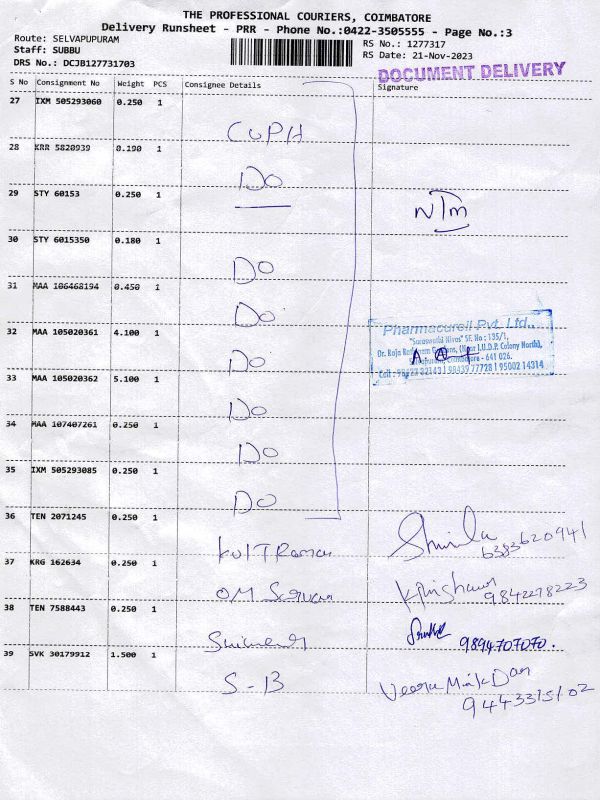 THE PROFESSIONAL COURIERS, COIMBATORE
Delivery Runsheet - PRR - Phone No.:0422-3505555 - Page No.:3
Route: SELVAPUPURAM
Staff: SUBBU
DRS No.: DCJB127731703
RS No.: 1277317
RS Date: 21-Nov-2023
DOCUMENT DELIVERY
S No Consignment No Weight PCS Consignee Details Signature
27 IXM 505293060 0.250 1
CUPH
28 KRR 5820939 0.190 1
DO
29 STY 60153 0.250 1
NTm
30 STY 6015350 0.180 1
DO
31 MAA 106468194 0.450 1
DO
32 MAA 105020361 4.100 1
DO
Pharmacureil Pvt. Ltd.,
"Saraswathi Nivas" SF. No : 135/1,
Dr. Raja Gardens, (Near I.U.D.P. Colony North),
Coimbatore - 641 026.
98439 77728 | 95002 14314
33 MAA 105020362 5.100 1
DO
34 MAA 107407261 0.250 1
DO
35 IXM 505293085 0.250 1
DO
36 TEN 2071245 0.250 1
6383620941
37 KRG 162634 0.250 1
OM
9842278223
38 TEN 7588443 0.250 1
9894707070.
39 SVK 30179912 1.500 1
S-B
9443315102